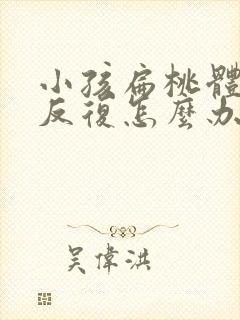 小孩扁桃體
反復怎麼办
吴偉洪